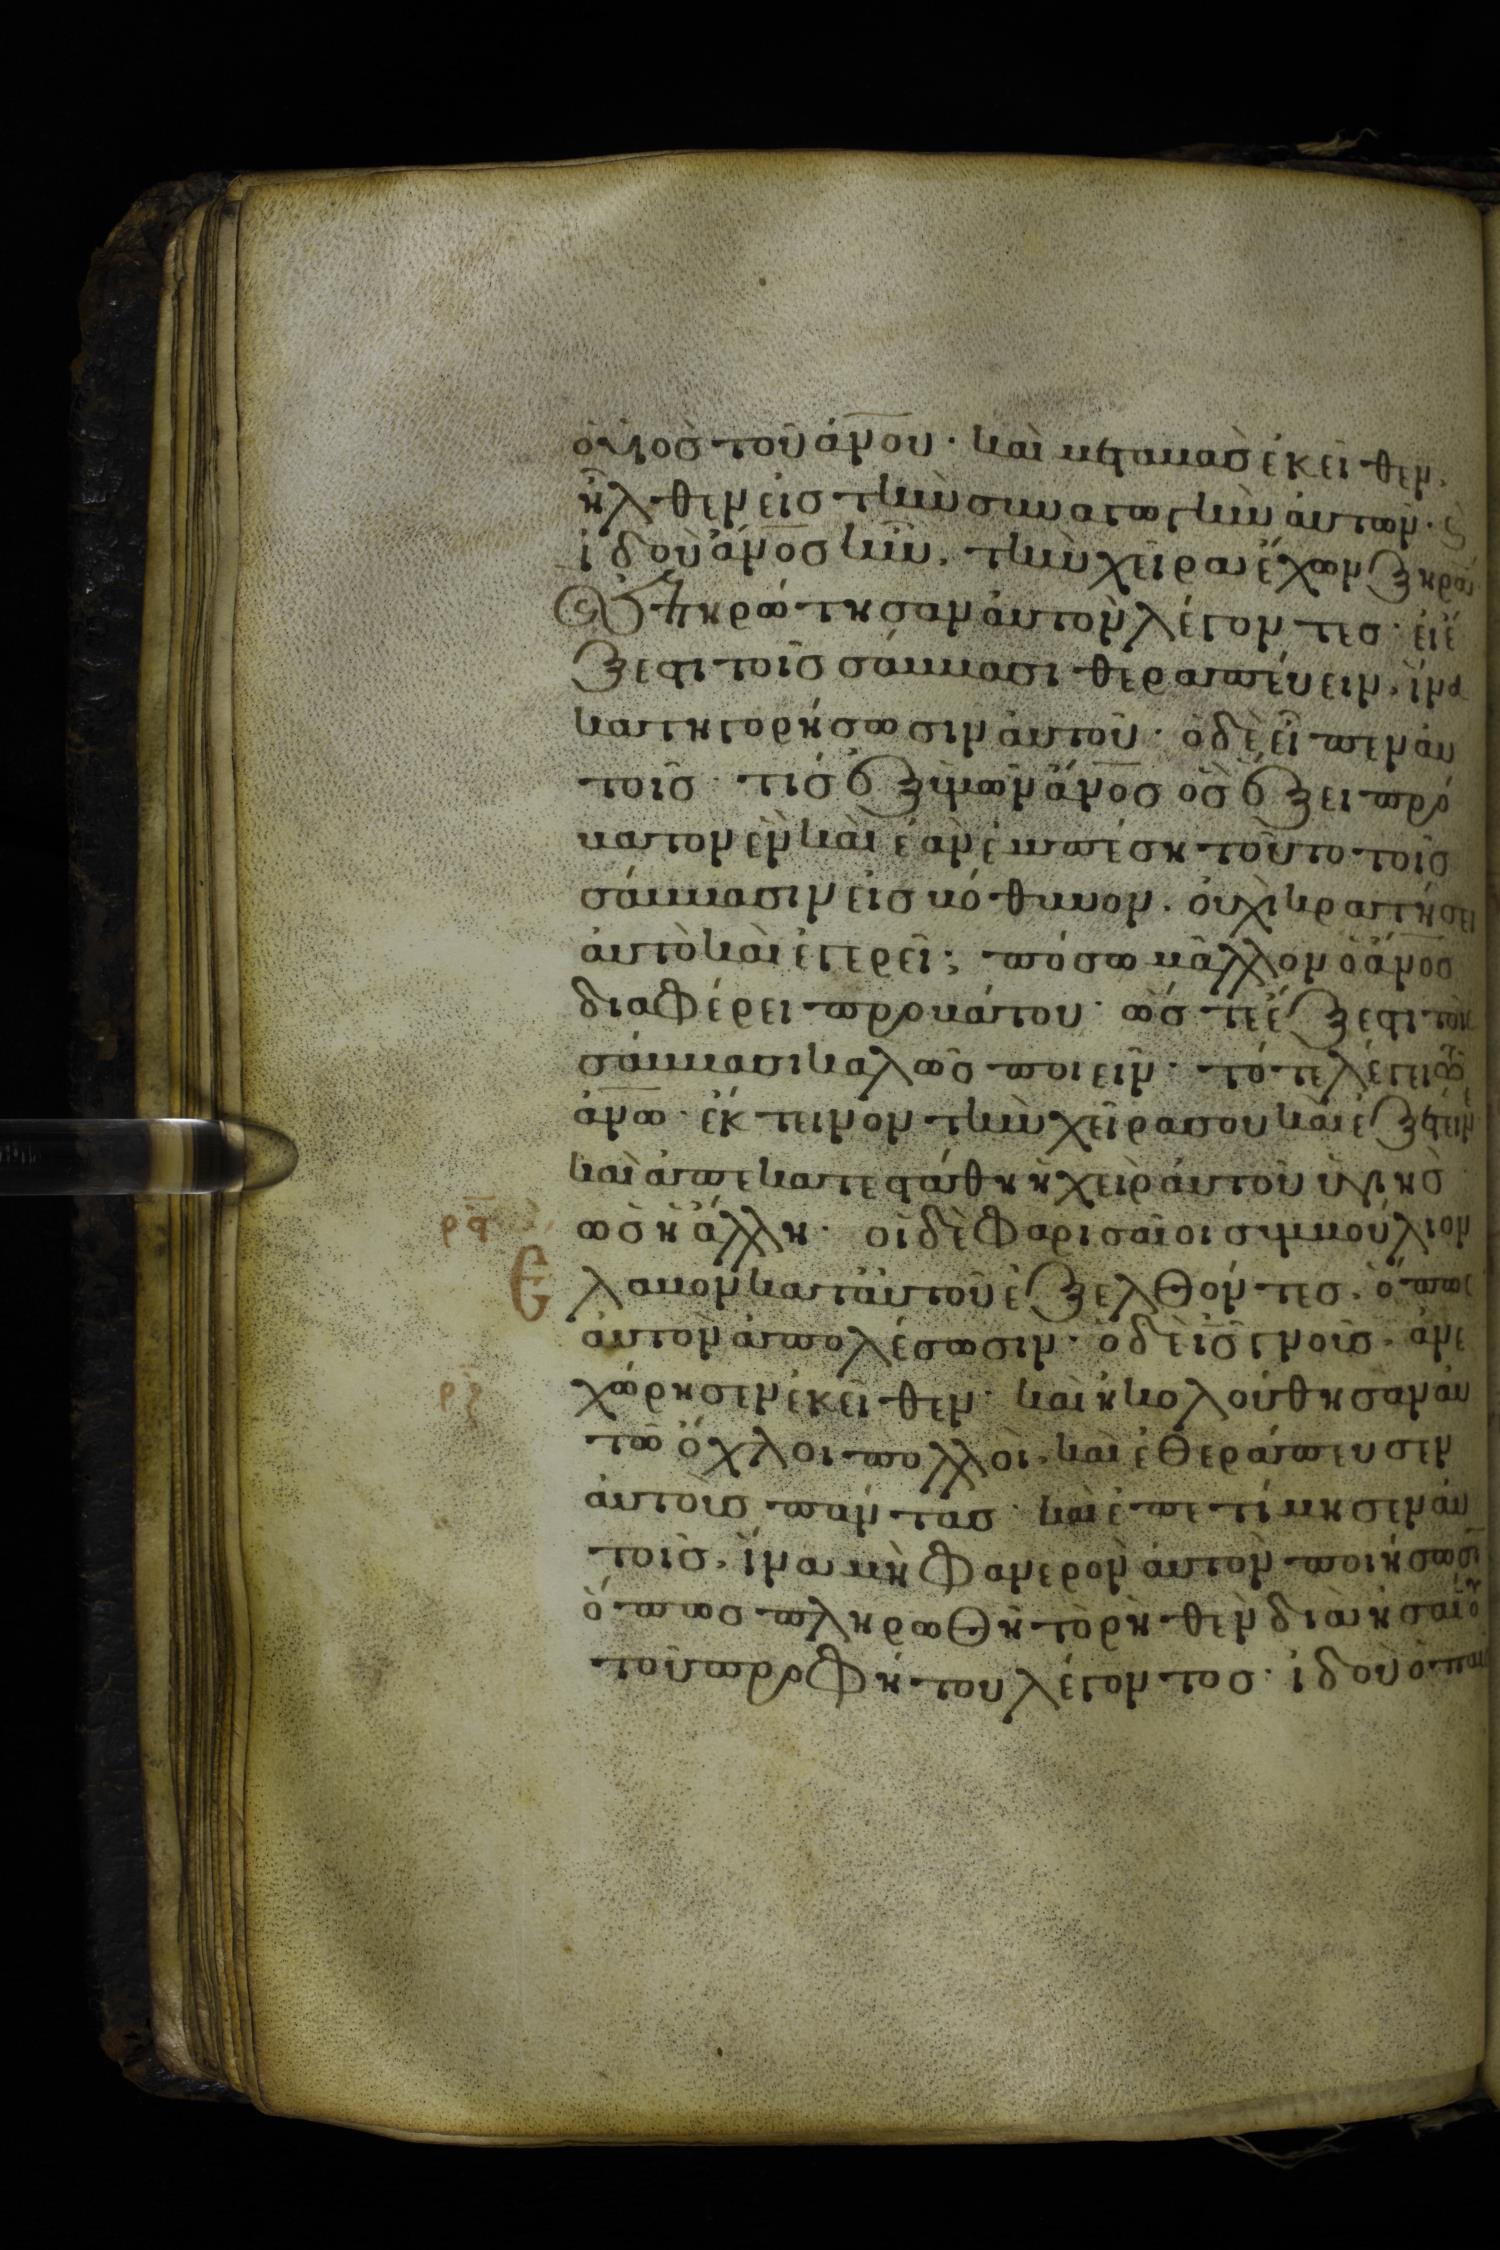 ὁ υἱὸς τοῦ ἀν̅ο̅υ̅· καὶ μεταβὰς ἐκεῖθεν,
ἦλθεν εἰς τὴν συναγωγὴν αὐτῶν· ϛ
ἰδοὺ ἄν̅ο̅ς̅ ἦν, τὴν χεῖρα ἔχων ξηράν
ϛ ἐπηρώτησαν αὐτὸν λέγοντες· εἰ ἔ
ξεστι τοῖς σάββασι θεραπεύειν, ἵνα
κατηγορήσωσιν αὐτοῦ· ὁ δὲ εἶπεν αὐ
τοῖς· τίς ἐξ ὑμῶν ἄν̅ο̅ς̅ ὃς ἕξει πρό
βατον ἓν καὶ ἐὰν ἐμπέση τοῦτο τοῖς
σάββασιν εἰς βόθυνον· οὐχὶ κρατήσει
αὐτὸ καὶ ἐγερεῖ; πόσω μᾶλλον ὁ ἄν̅ο̅ς̅
διαφέρει προβάτου· ὥστε ἔξεστι τοῖς
σάββασιν καλῶς ποιεῖν· τότε λέγει τῶ
ἀν̅ω̅· ἔκτεινον τὴν χεῖρα σου καὶ ἐξέτεινεν
καὶ ἀπεκατεστάθη ἡ χεὶρ αὐτοῦ ὑγιὴς
ὡς ἡ ἄλλη· οἱ δὲ φαρισαῖοι συμβούλιον
Ελαβον κατ' αὐτοῦ ἐξελθόντες· ὅπως
αὐτὸν ἀπολέσωσιν· ὁ δὲ ι̅ς̅ γνοὺς· ἀνε
χώρησεν ἐκεῖθεν· καὶ ἠκολούθησαν αὐ
τῶ ὄχλοι πολλοὶ· καὶ ἐθεράπευσεν
αὐτοὺς πάντας· καὶ ἐπετίμησεν αὐ
τοῖς, ἵνα μὴ φανερὸν αὐτὸν ποιήσωσιν
ὅπως πληρωθῆ τὸ ῥηθὲν διὰ ἡσαΐου
τοῦ προφήτου λέγοντος· ἰδοὺ ὁ παῖς